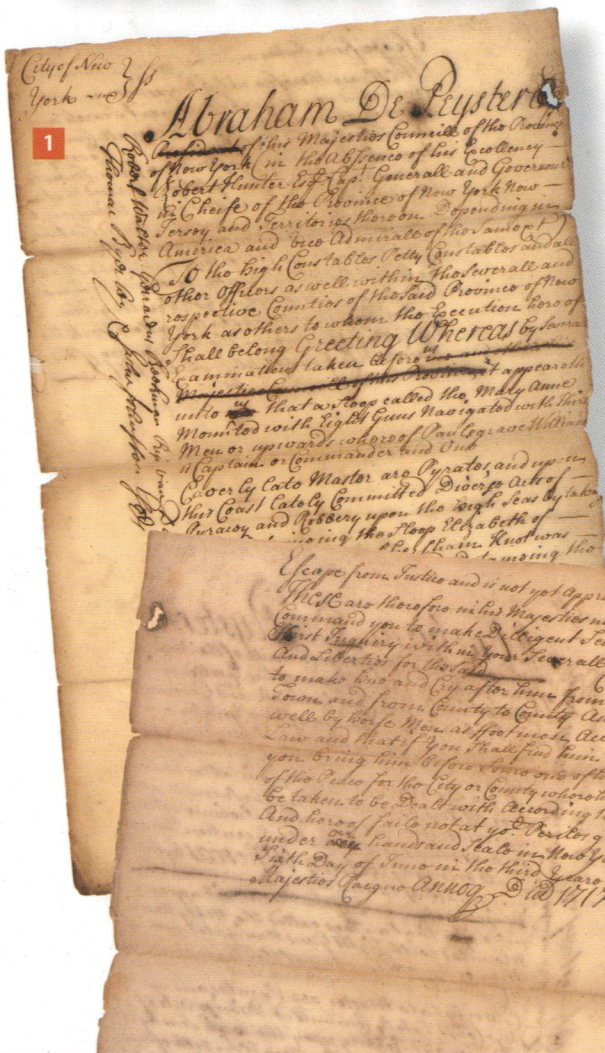 City of New
York
ss
1
Abraham De Peyster
President of his Majesties Councill of the Province
of New York (in the Absence of his Excellency
Robert Hunter Esq Capt Generall and Governour
in Cheife of the Province of New York New
Jersey and Territories thereon Depending in
America and Vice Admirall of the Same &c)
To the high Constables Petty Constables and all
other Officers as well within the Severall and
respective Counties of the Said Province of New
York as others to whom the Execution hereof
Shall belong Greeting Whereas by Severall
Examinations taken before
Majesties Councill of this Province it appeareth
unto us that a Sloop called the Mary Anne
Mounted with Eight Guns Navigated with Thirty
Men or upwards whereof Paulsgrave William
is Captain or Commander and One
Eaverly late Master are Pyrates, and upon
this Coast lately Committed Diverse Acts of
Pyracy and Robbery upon the high Seas by taking
the Sloop Elizabeth of
Knot was
the
Robert Walter Gerardus Beekman Rip van
Thomas Byerley & John Johnston
Escape from Justice and is not yet
These are therefore in his Majesties
Command you to make Diligent
Strict Inquiry within your Severall
And Liberties for the said
to make Hue and Cry after him from
Town and from County to County
well by Horse Men as ffootmen
Law and that if You Shall find him
you bring him before Some one of the
of the Peace for the City or County where
be taken to be Dealt with According to
And hereof faile not at yor Perilos
under our hands and Seale in New
Sixth Day of June in the third Yeare
Majesties Raigne Annoq Dio 1717